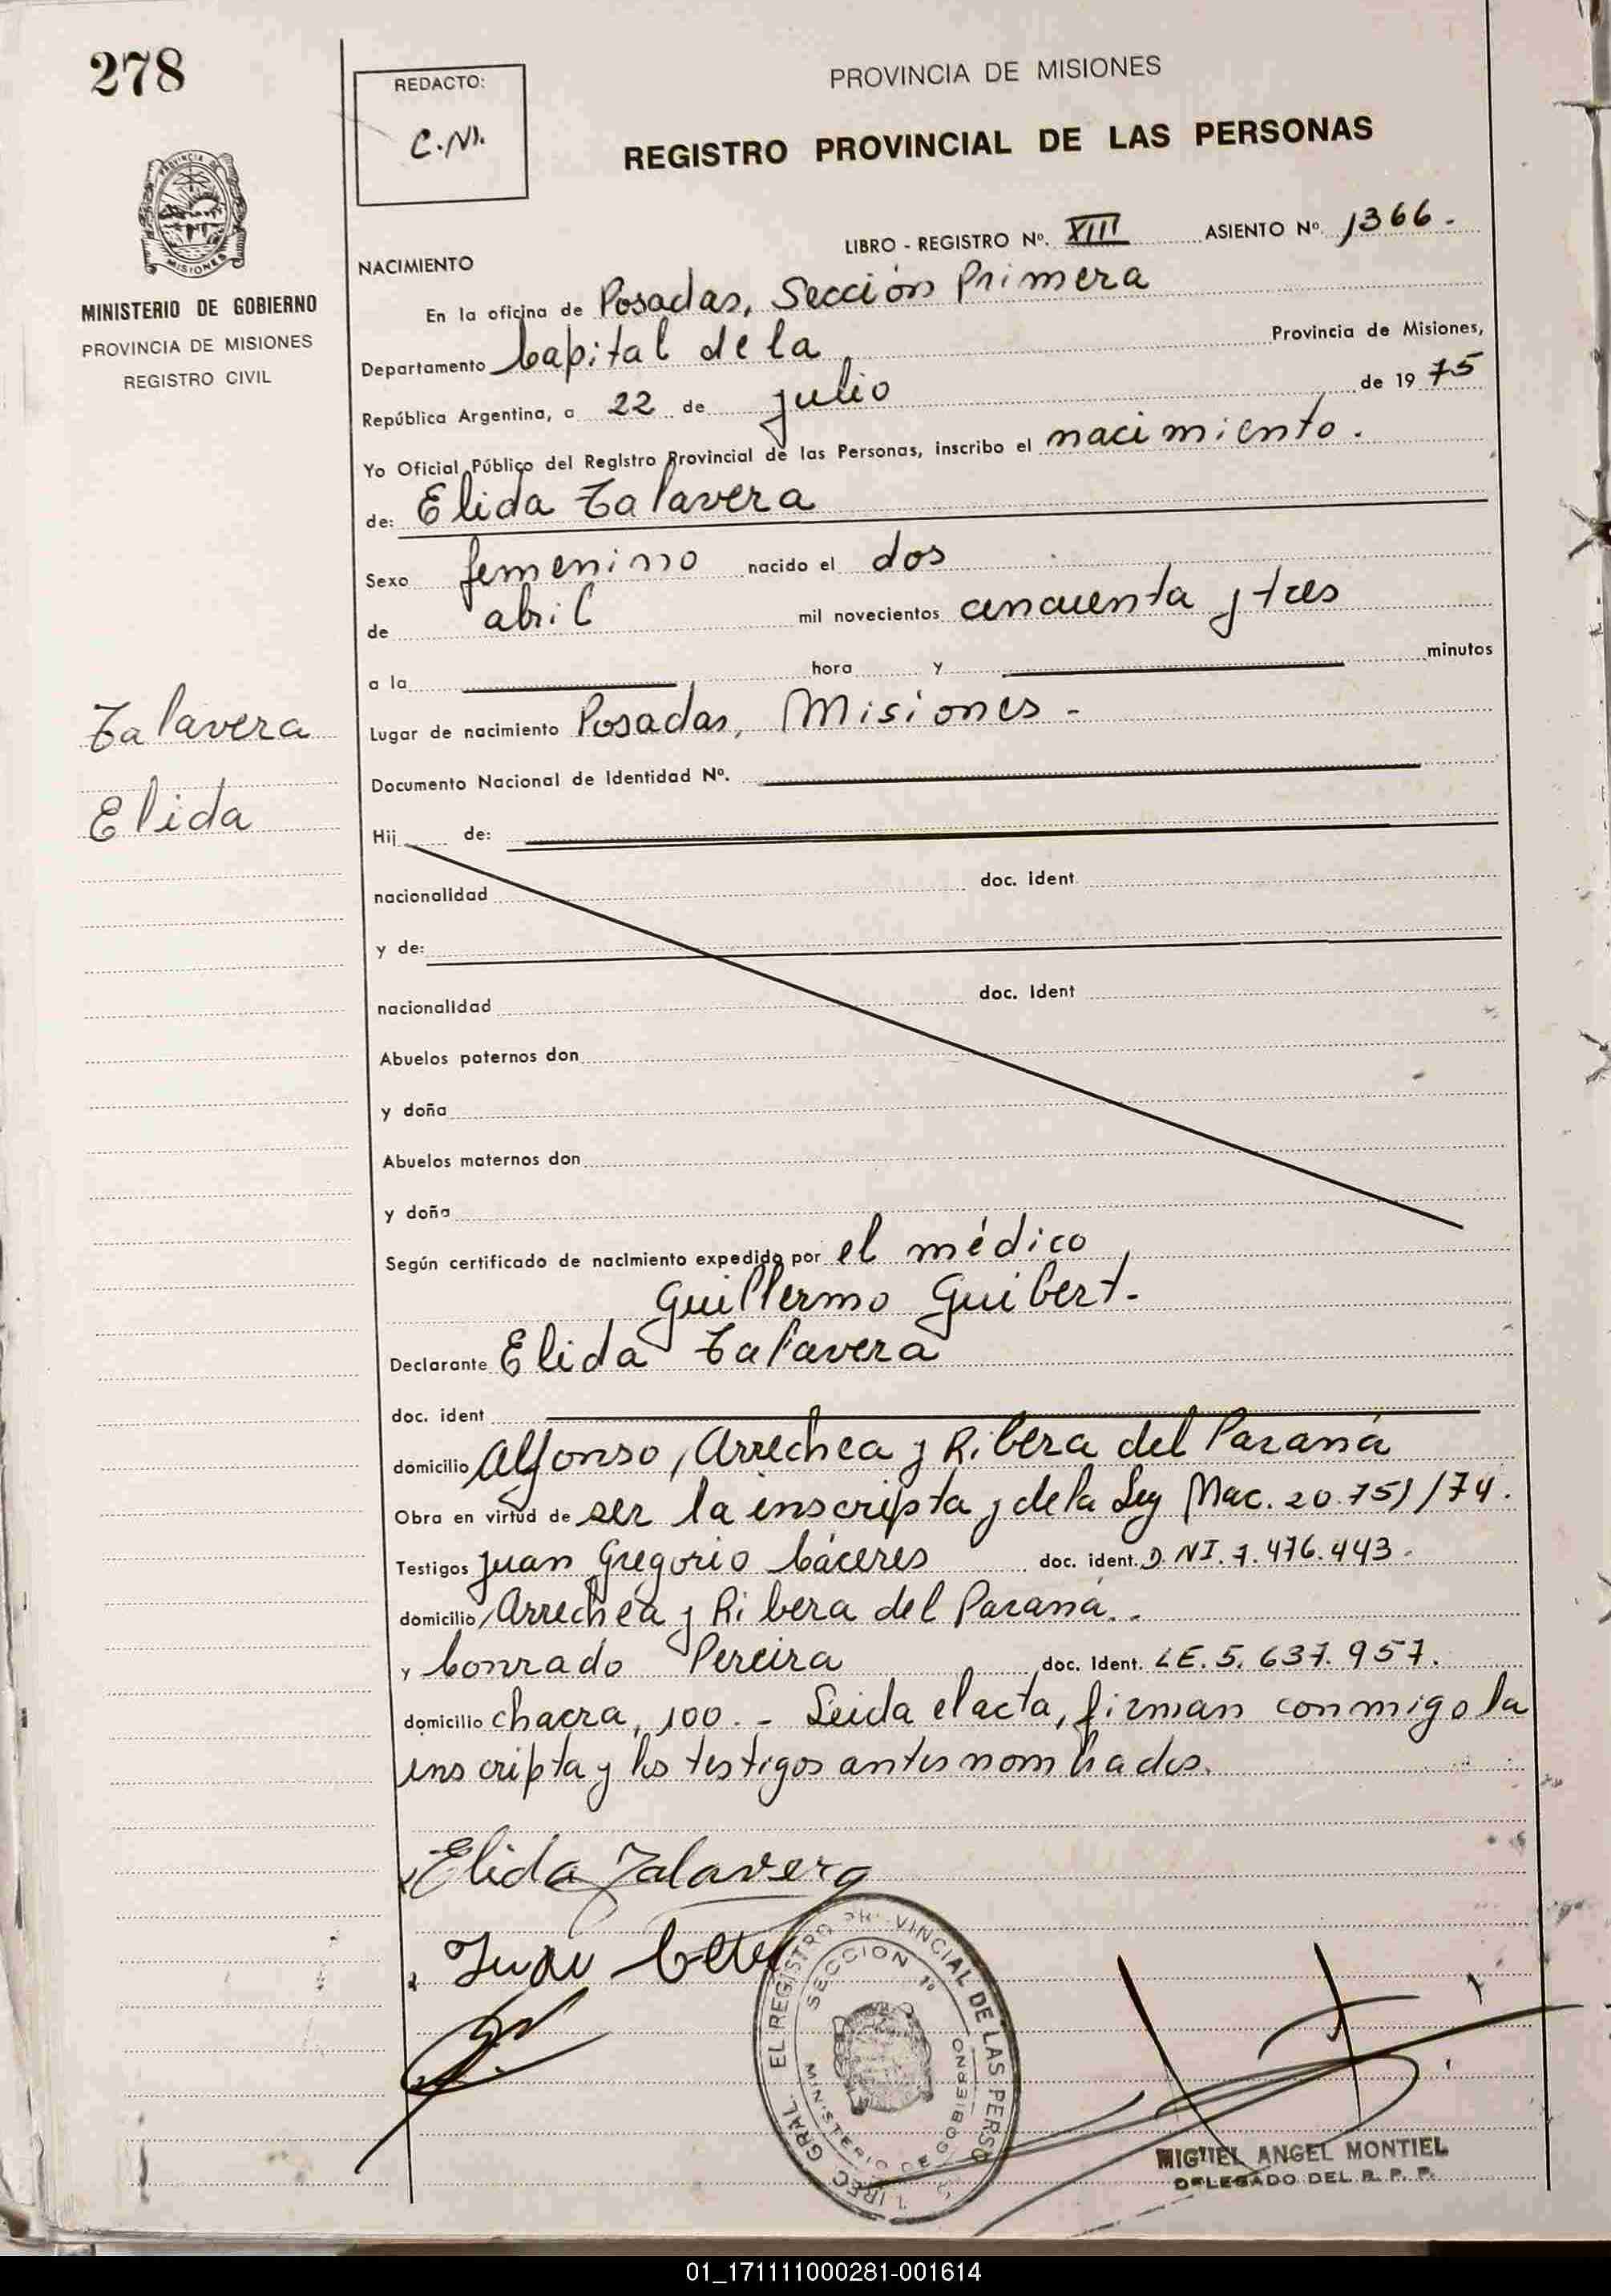 278
REDACTO:
C.N.
PROVINCIA DE MISIONES
REGISTRO PROVINCIAL DE LAS PERSONAS
PROVINCIA DE
MISIONES
MINISTERIO DE GOBIERNO
PROVINCIA DE MISIONES
REGISTRO CIVIL
LIBRO - REGISTRO Nº. XIII ASIENTO Nº. 1366.-
NACIMIENTO
En la oficina de Posadas, Sección Primera
Departamento Capital de la Provincia de Misiones,
República Argentina, a 22 de julio de 1975
Yo Oficial Público del Registro Provincial de las Personas, inscribo el nacimiento.
de: Elida Talavera
Sexo femenino nacido el dos
de abril mil novecientos cincuenta y tres
a la hora y minutos
Talavera
Elida
Lugar de nacimiento Posadas, Misiones -
Documento Nacional de Identidad Nº.
Hij de:
nacionalidad doc. ident
y de:
nacionalidad doc. Ident
Abuelos paternos don
y doña
Abuelos maternos don
y doña
Según certificado de nacimiento expedido por el médico
Guillermo Guibert.-
Declarante Elida Talavera
doc. ident
domicilio Alfonso, Arrechea y Ribera del Paraná
Obra en virtud de ser la inscripta y de la Ley Nac. 20.751/74.
Testigos Juan Gregorio Cáceres doc. ident. D.NI. 7.476.443.
domicilio Arrechea y Ribera del Paraná.
y Conrado Pereira doc. Ident. LE. 5. 637. 957.
domicilio chacra, 100.- Leida el acta, firman conmigo la
inscripta y los testigos antes nombrados.
Elida Talavera
Juan
EL REGISTRO PROVINCIAL DE LAS PERSO
SECCION 1º
MINISTERIO DE GOBIERNO
DIREC. GRAL.
MIGUEL ANGEL MONTIEL
DELEGADO DEL R. P. P.
01_171111000281-001614